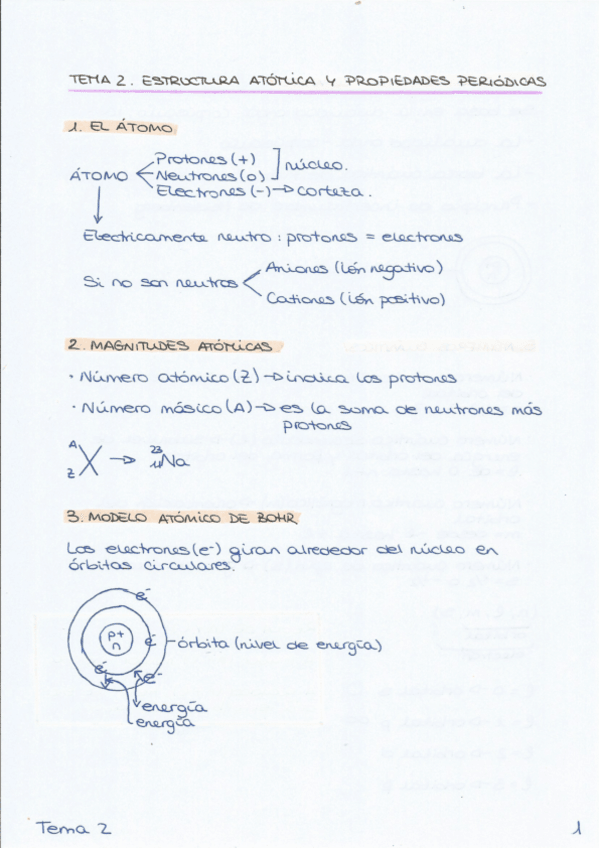 TEMA 2. ESTRUCTURA ATÓMICA Y PROPIEDADES PERIÓDICAS
1. EL ÁTOMO
ÁTOMO
Protones (+)
Neutrones (0)
núcleo.
Electrones (-) → corteza.
Electricamente neutro: protones = electrones
Si no son neutros
Aniones (ión negativo)
Cationes (ión positivo)
2. MAGNITUDES ATÓMICAS
· Número atómico (Z) → indica los protones
· Número másico (A) → es la suma de neutrones más
protones
A
Z X → 23
11 Na
3. MODELO ATÓMICO DE BOHR
Los electrones (e-) giran alrededor del núcleo en
órbitas circulares.
e-
p+
n
e-
órbita (nivel de energía)
e-
e-
energía
energía
Tema 2
1